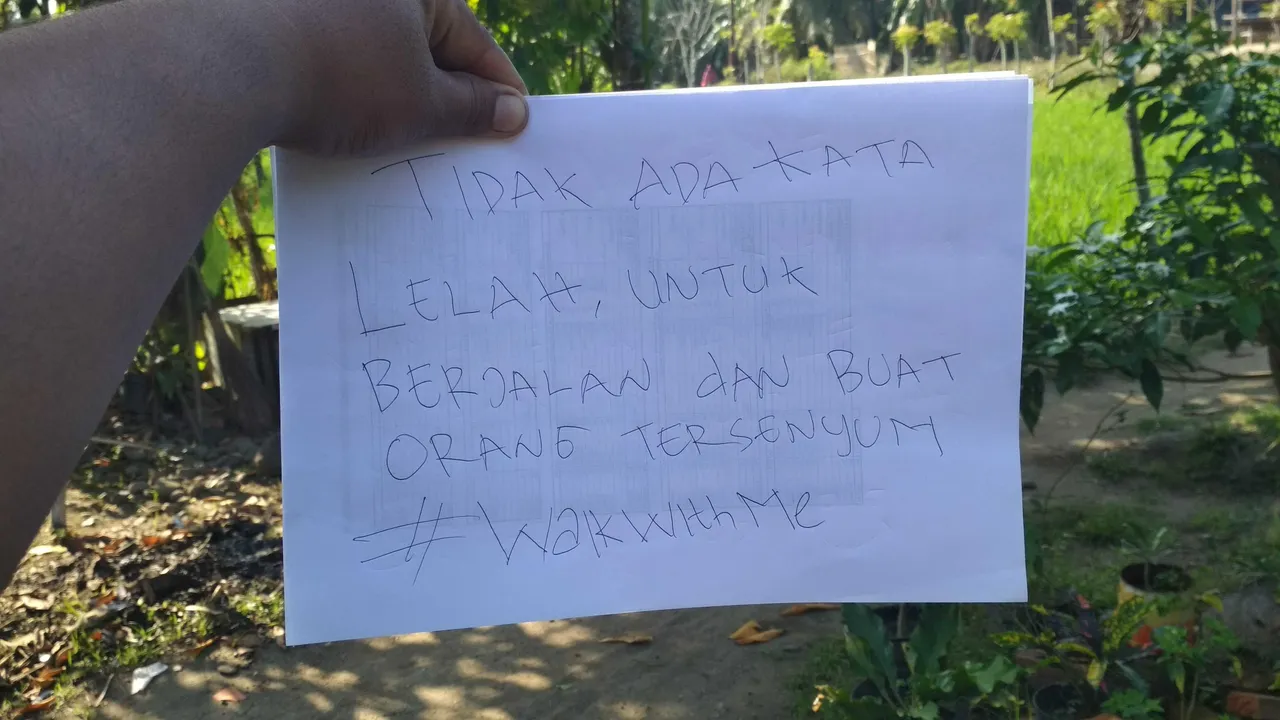 TIDAK ADA KATA
LELAH, UNTUK
BERJALAN dAN BUAT
ORANG TERSENYUM
#WalkWithMe